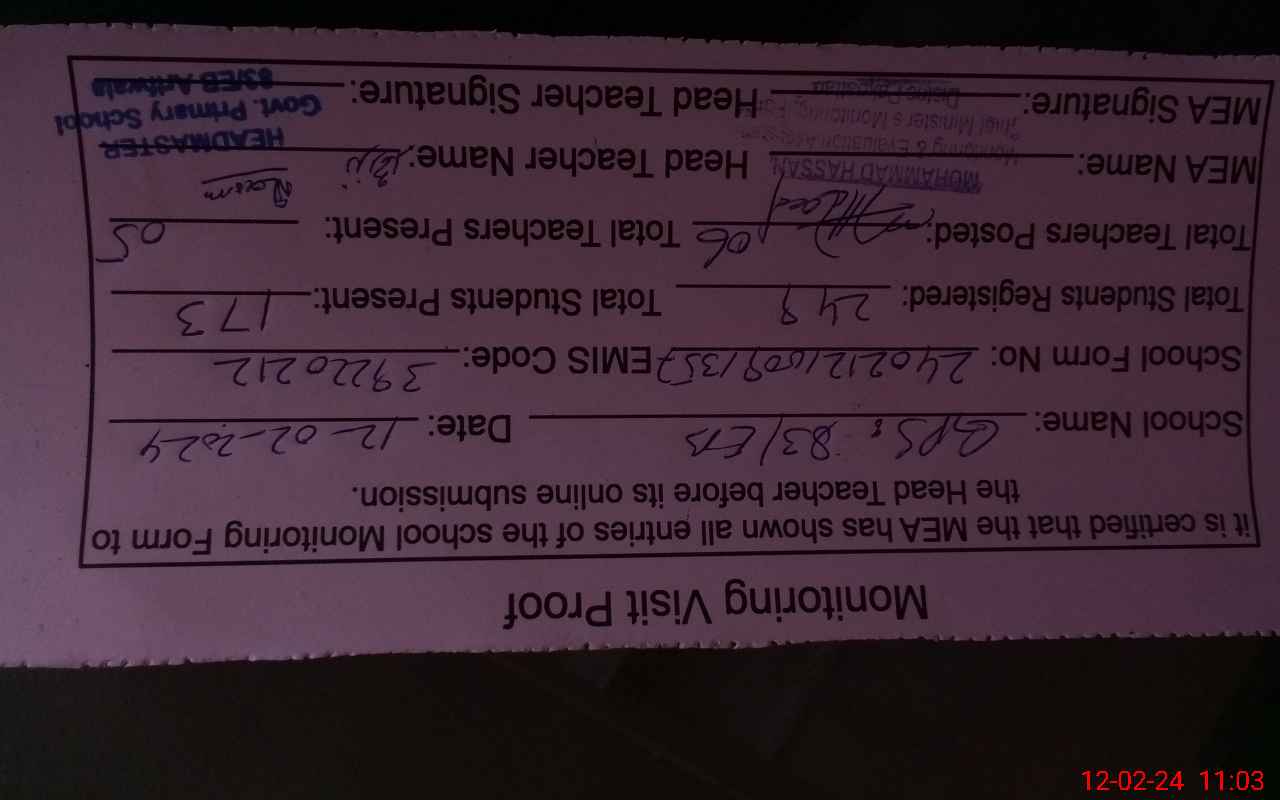 Monitoring Visit Proof
it is certified that the MEA has shown all entries of the school Monitoring Form to
the Head Teacher before its online submission.
School Name: GPS: 83/EB Date: 12-02-2024
School Form No: 24021210091357 EMIS Code: 39220212
Total Students Registered: 249 Total Students Present: 173
Total Teachers Posted: 06 Total Teachers Present: 05
MEA Name: MUHAMMAD HASSAN Head Teacher Name:
Monitoring & Evaluation
HEADMASTER
Govt. Primary School
MEA Signature: Head Teacher Signature:
83/EB
12-02-24 11:03